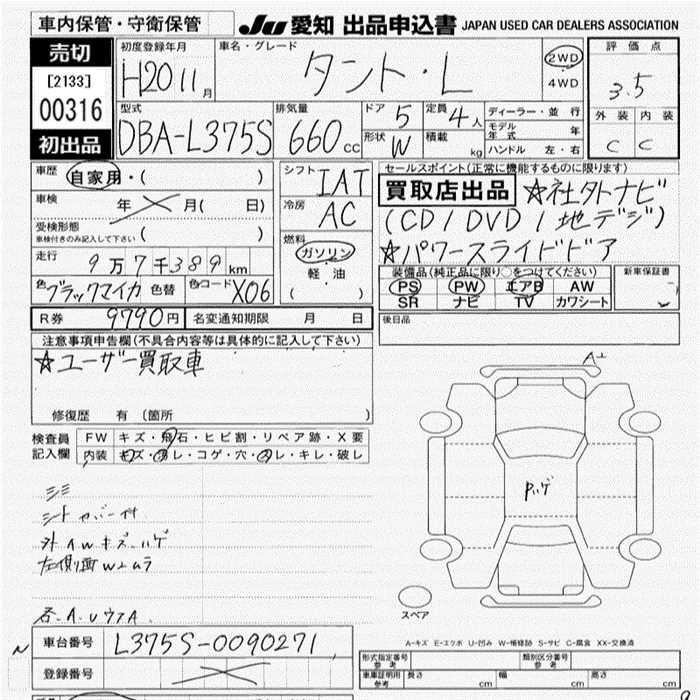 車内保管・守衛保管
JU 愛知 出品申込書 JAPAN USED CAR DEALERS ASSOCIATION
売切
[2133]
00316
初出品
初度登録年月
H20 11月
車名・グレード
タント・L
2WD
4WD
評価点
3.5
外装 内装
C C
型式
DBA-L375S
排気量
660cc
ドア 5
定員 4人
形状 W
積載 kg
ディーラー・並行
モデル年式 年
ハンドル 左・右
車歴
自家用・( )
車検
年 月( 日)
受検形態
車検付きのみ記入して下さい ( )
走行
9万7千389km
色 ブラックマイカ 色替 色コード X06
シフト IAT
冷房 AC
燃料
ガソリン
軽油
( ・ )
セールスポイント(正常に機能するものに限ります)
買取店出品 ☆社外ナビ
(CD/DVD/地デジ)
☆パワースライドドア
装備品(純正品に限り○をつけてください)
PS PW エアB AW
SR ナビ TV カワシート
新車保証書
R券 9790円 名変通知期限 月 日
後日品
注意事項申告欄(不具合内容等は具体的に記入して下さい)
☆ユーザー買取車
修復歴 有 (箇所 )
検査員記入欄
FW キズ・飛石・ヒビ割・リペア跡・X要
内装 キズ・ヨレ・コゲ・穴・スレ・キレ・破し
シミ
シートカバー付
外AWキズ・ハゲ
左側面W±ムラ
各.A.Uウァム
A1
Pハゲ
スペア
A-キズ E-エクボ U-凹み W-補修跡 S-サビ C-腐食 XX-交換済
車台番号 L375S-0090271
登録番号
形式指定番号 参考
類別区分番号 参考
車庫証明用 参考 長さ cm 幅 cm 高さ cm